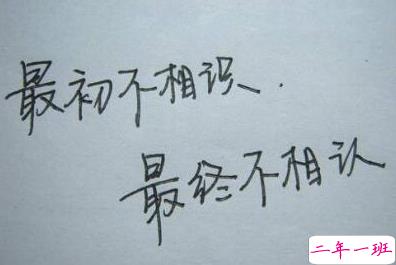 最初不相识.
最终不相认
二年一班